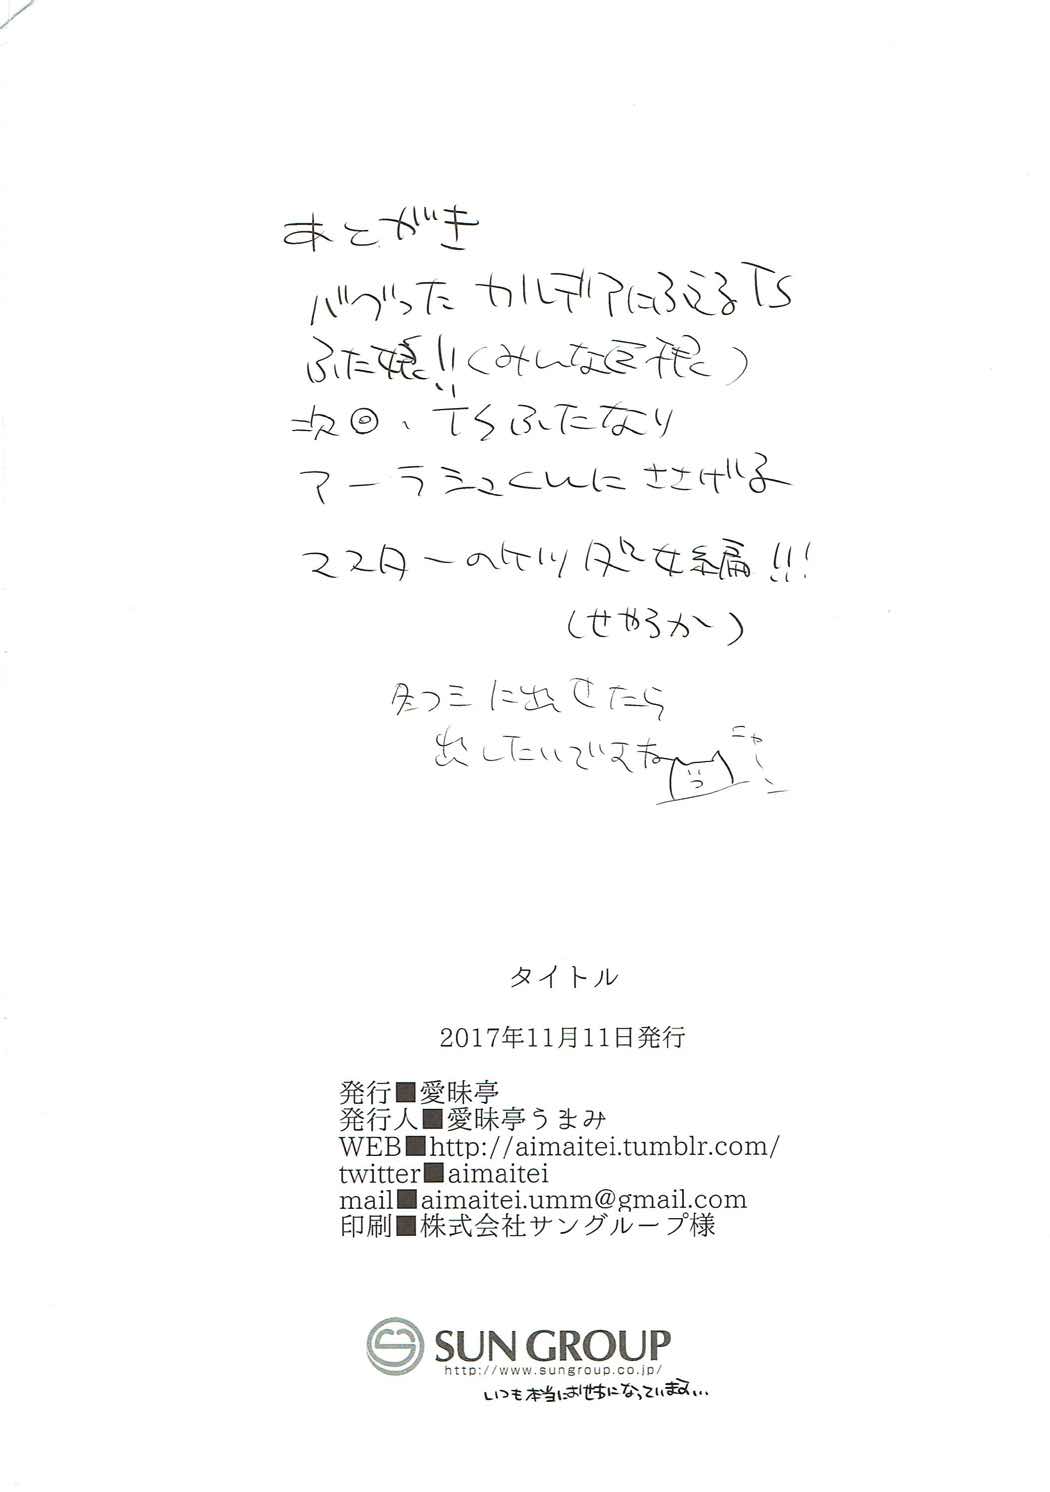 あとがき
バグったカルデアにふえるTS
ふた娘!!(みんな巨根)
次回、TSふたなり
アーラシュくんにささげる
マスターのケツ処女編!!!
(せやろかー)
に出せたら
出したいですね
ニャーン
タイトル
2017年11月11日発行
発行■愛昧亭
発行人■愛昧亭うまみ
WEB■http://aimaitei.tumblr.com/
twitter■aimaitei
mail■aimaitei.umm@gmail.com
印刷■株式会社サングループ様
SUN GROUP
http://www.sungroup.co.jp/
いつも本当におせわになっています...